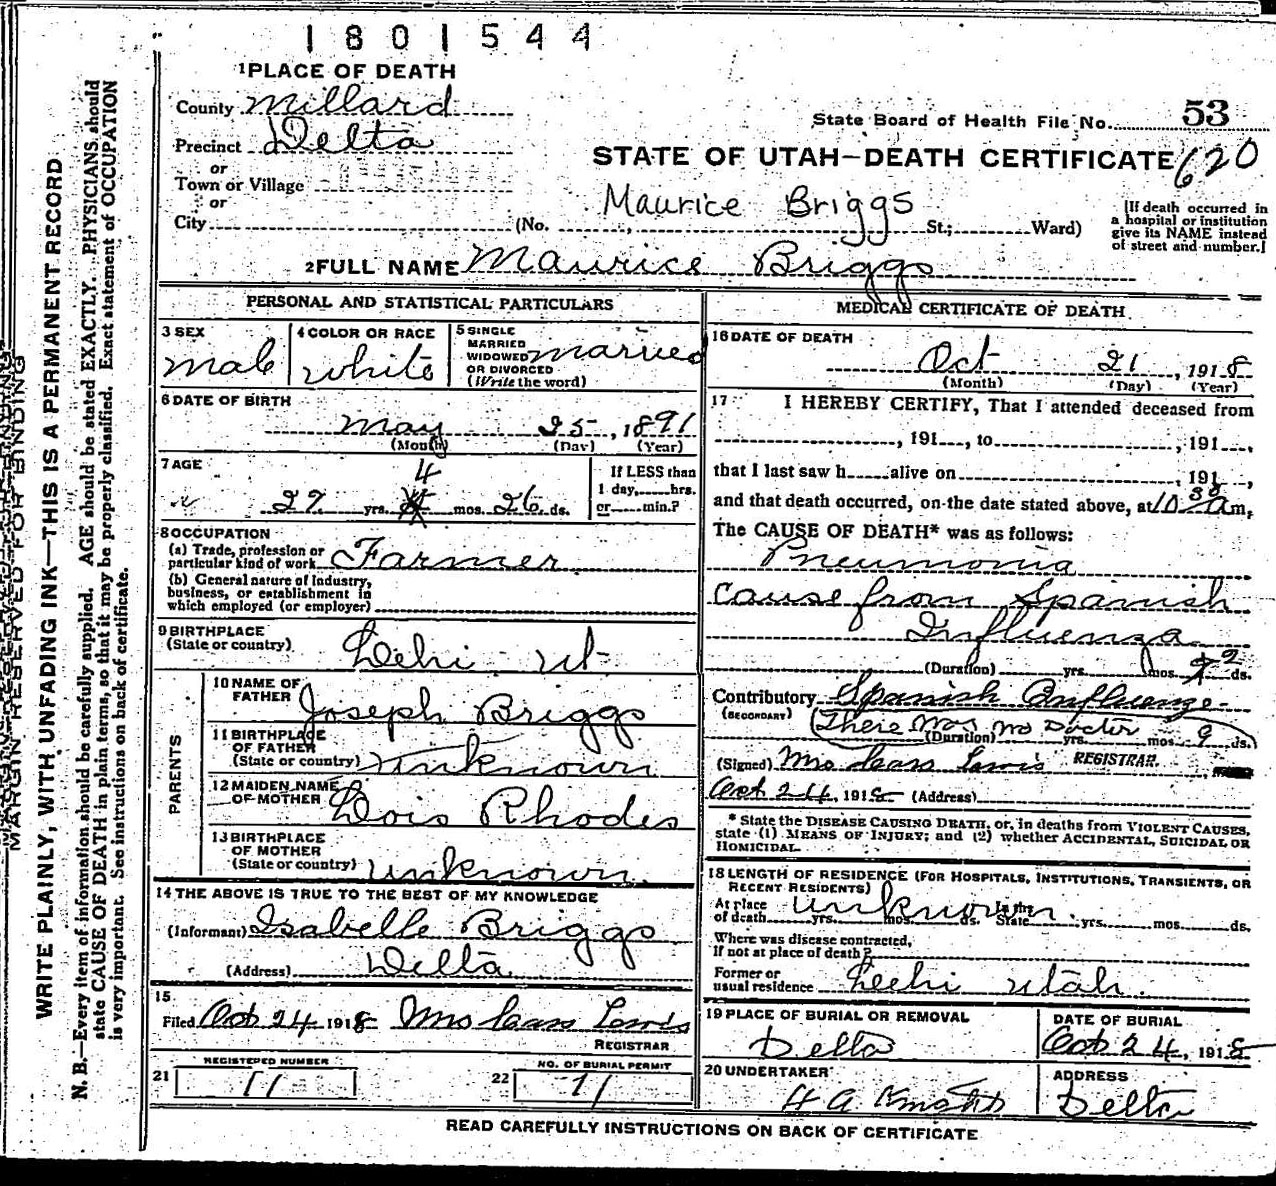 1801544
1 PLACE OF DEATH
County Millard
State Board of Health File No. 53
Precinct Delta
STATE OF UTAH—DEATH CERTIFICATE 620
or
Town or Village
or
Maurice Briggs
City (No. St.; Ward)
[If death occurred in
a hospital or institution
give its NAME instead
of street and number.]
2 FULL NAME Maurice Briggs
PERSONAL AND STATISTICAL PARTICULARS
3 SEX
male
4 COLOR OR RACE
white
5 SINGLE
MARRIED
WIDOWED married
OR DIVORCED
(Write the word)
6 DATE OF BIRTH
May 25, 1891
(Month) (Day) (Year)
7 AGE
4
27 yrs. mos. 26 ds.
If LESS than
1 day, hrs.
or min.?
8 OCCUPATION
(a) Trade, profession or
particular kind of work Farmer
(b) General nature of industry,
business, or establishment in
which employed (or employer)
9 BIRTHPLACE
(State or country) Lehi ut
PARENTS
10 NAME OF
FATHER Joseph Briggs
11 BIRTHPLACE
OF FATHER
(State or country) unknown
12 MAIDEN NAME
OF MOTHER Lois Rhodes
13 BIRTHPLACE
OF MOTHER
(State or country) unknown
14 THE ABOVE IS TRUE TO THE BEST OF MY KNOWLEDGE
(Informant) Isabelle Briggs
(Address) Delta
15
Filed Oct 24 1918 Mrs Cass Lewis
REGISTRAR
REGISTERED NUMBER
21 11
NO. OF BURIAL PERMIT
22 11
MEDICAL CERTIFICATE OF DEATH
16 DATE OF DEATH
Oct 21, 1918
(Month) (Day) (Year)
17 I HEREBY CERTIFY, That I attended deceased from
, 191 , to , 191 ,
that I last saw h alive on , 191 ,
and that death occurred, on the date stated above, at 10 30 a m,
The CAUSE OF DEATH* was as follows:
Pneumonia
cause from Spanish
Influenza
(Duration) yrs. mos. 2 ds.
Contributory Spanish Influenze
(SECONDARY) (There was no Doctor
(Duration) yrs. mos. 9 ds.)
(Signed) Mrs Cass Lewis REGISTRAR
Oct 24, 1918 (Address)
* State the DISEASE CAUSING DEATH, or, in deaths from VIOLENT CAUSES,
state (1) MEANS OF INJURY; and (2) whether ACCIDENTAL, SUICIDAL OR
HOMICIDAL.
18 LENGTH OF RESIDENCE (FOR HOSPITALS, INSTITUTIONS, TRANSIENTS, OR
RECENT RESIDENTS)
At place In the
of death unknown yrs. mos. ds. State yrs. mos. ds.
Where was disease contracted,
if not at place of death?
Former or
usual residence Leehi utah.
19 PLACE OF BURIAL OR REMOVAL
Delta
DATE OF BURIAL
Oct 24, 1918
20 UNDERTAKER
H A Knights
ADDRESS
Delta
READ CAREFULLY INSTRUCTIONS ON BACK OF CERTIFICATE
MARGIN RESERVED FOR BINDING
WRITE PLAINLY, WITH UNFADING INK—THIS IS A PERMANENT RECORD
N. B.—Every item of information should be carefully supplied. AGE should be stated EXACTLY. PHYSICIANS should
state CAUSE OF DEATH in plain terms, so that it may be properly classified. Exact statement of OCCUPATION
is very important. See instructions on back of certificate.